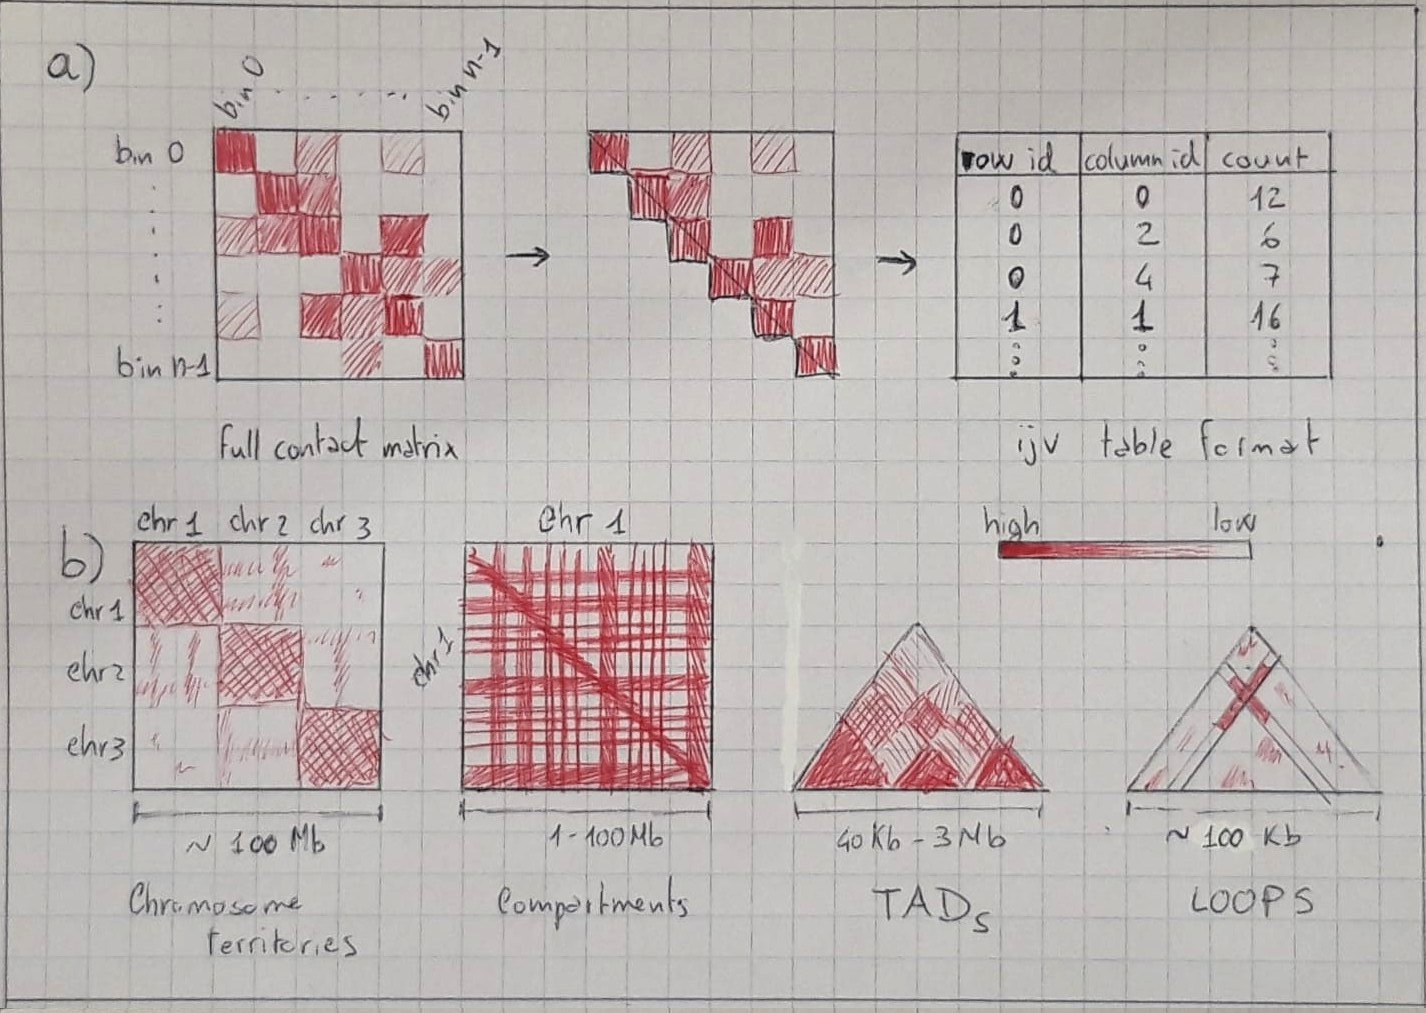 a)
bin 0 . . . . . bin n-1
bin 0
bin n-1
row id column id count
0 0 12
0 2 6
0 4 7
1 1 16
full contact matrix
ijv table format
b)
chr 1 chr 2 chr 3
chr 1
chr 2
chr 3
~ 100 Mb
Chromosome
territories
Chr 1
chr 1
1-100Mb
Compartments
high low
40 Kb - 3 Mb
TADs
~ 100 Kb
LOOPS